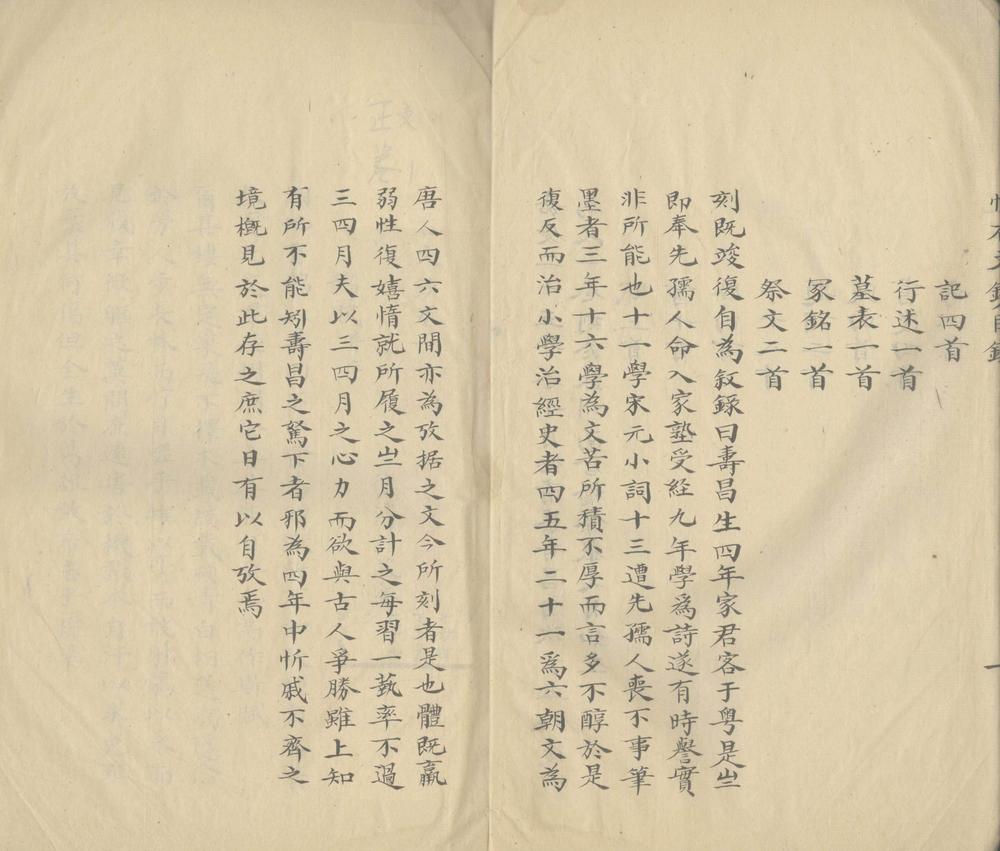 記四首
行述一首
墓表一首
冢銘一首
祭文二首
刻既竣復自為敘錄曰壽昌生四年家君客于粤是歲
即奉先孺人命入家塾受経九年學爲詩遂有時譽實
非所能也十一學宋元小詞十三遭先孺人喪不事筆
墨者三年十六學為文苦所積不厚而言多不醇於是
復反而治小學治經史者四五年二十一爲六朝文為
唐人四六文間亦為攷据之文今所刻者是也體既羸
弱性復嬉惰就所履之歲月分計之每習一藝率不過
三四月夫以三四月之心力而欲與古人爭勝雖上知
有所不能矧壽昌之駑下者邪為四年中忻戚不齊之
境概見於此存之庶它日有以自攷焉